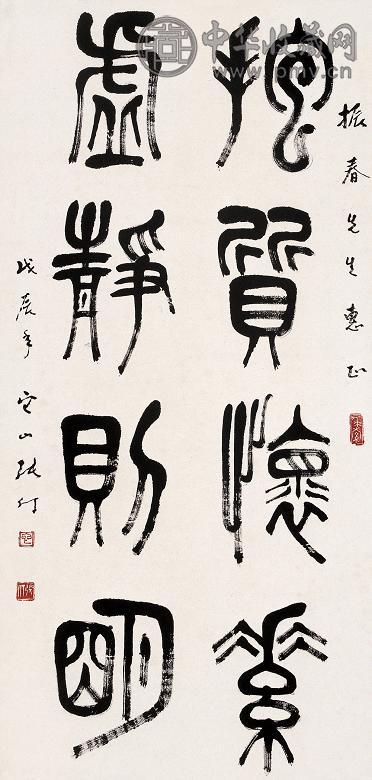 中华收藏网
www.pmv.cn
振春先生惠正
抱質懷素
虛靜則明
戊辰年它山張仃